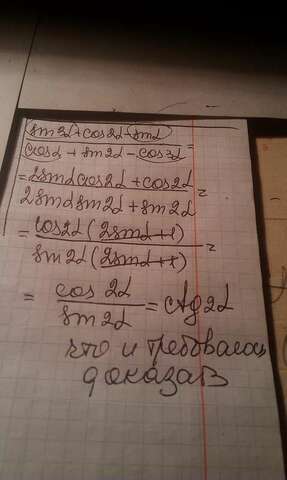 sin3α+cos2α-sinα
cosα+sin2α-cos3α =
= 2sinαcos2α+cos2α
2sinαsin2α+sin2α =
= cos2α(2sinα+1)
sin2α(2sinα+1) =
= cos2α
sin2α = ctg2α
что и требовалось
доказать